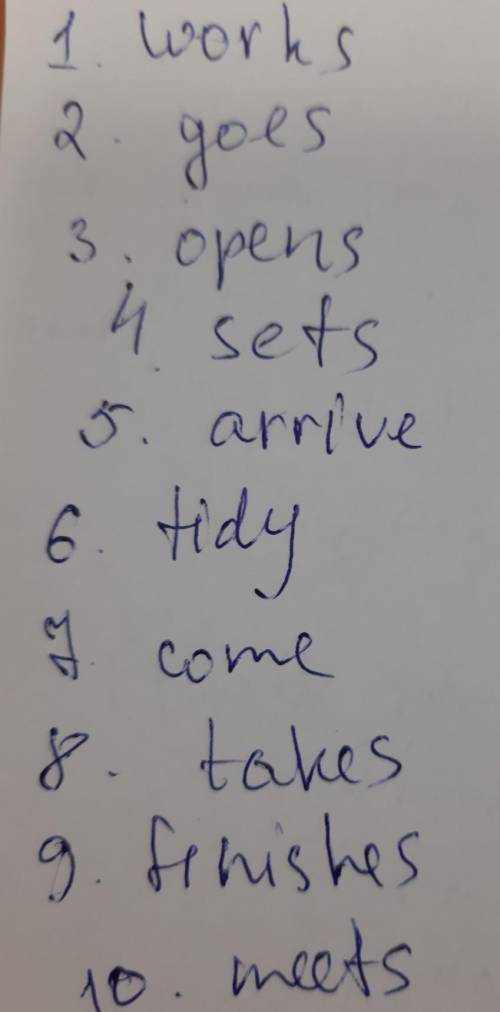 1. works
2. goes
3. opens
4. sets
5. arrive
6. tidy
7. come
8. takes
9. finishes
10. meets